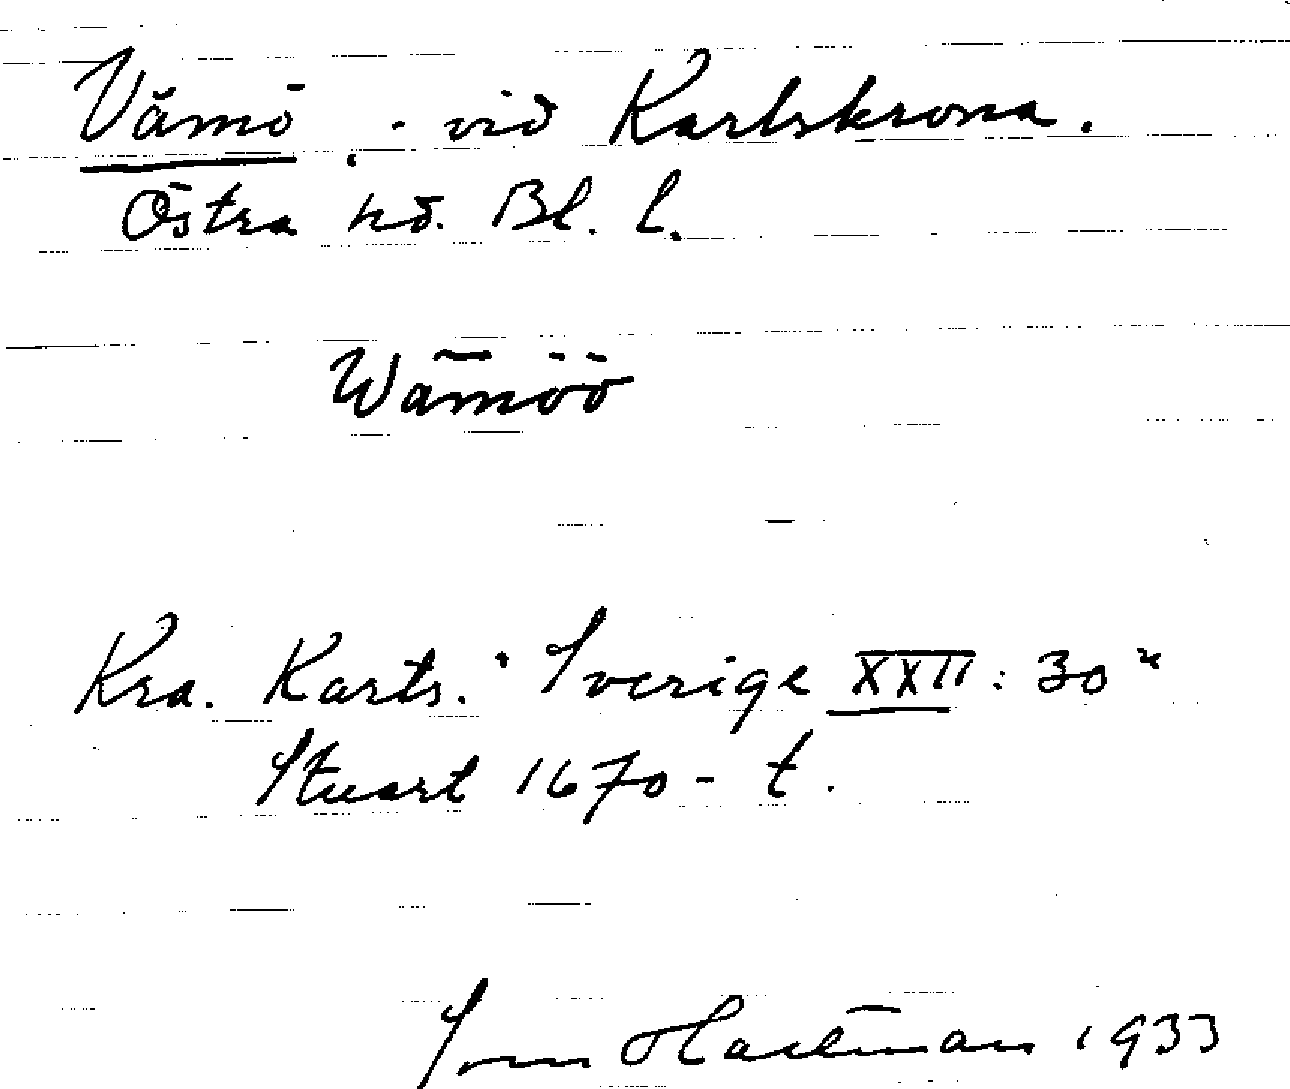 Vämö . vid Karlskrona.
Östra hd. Bl. l.
Wämöö
Kra. Karts. "Sverige XXII: 30"
Stuart 1670 - t.
Hartman 1933